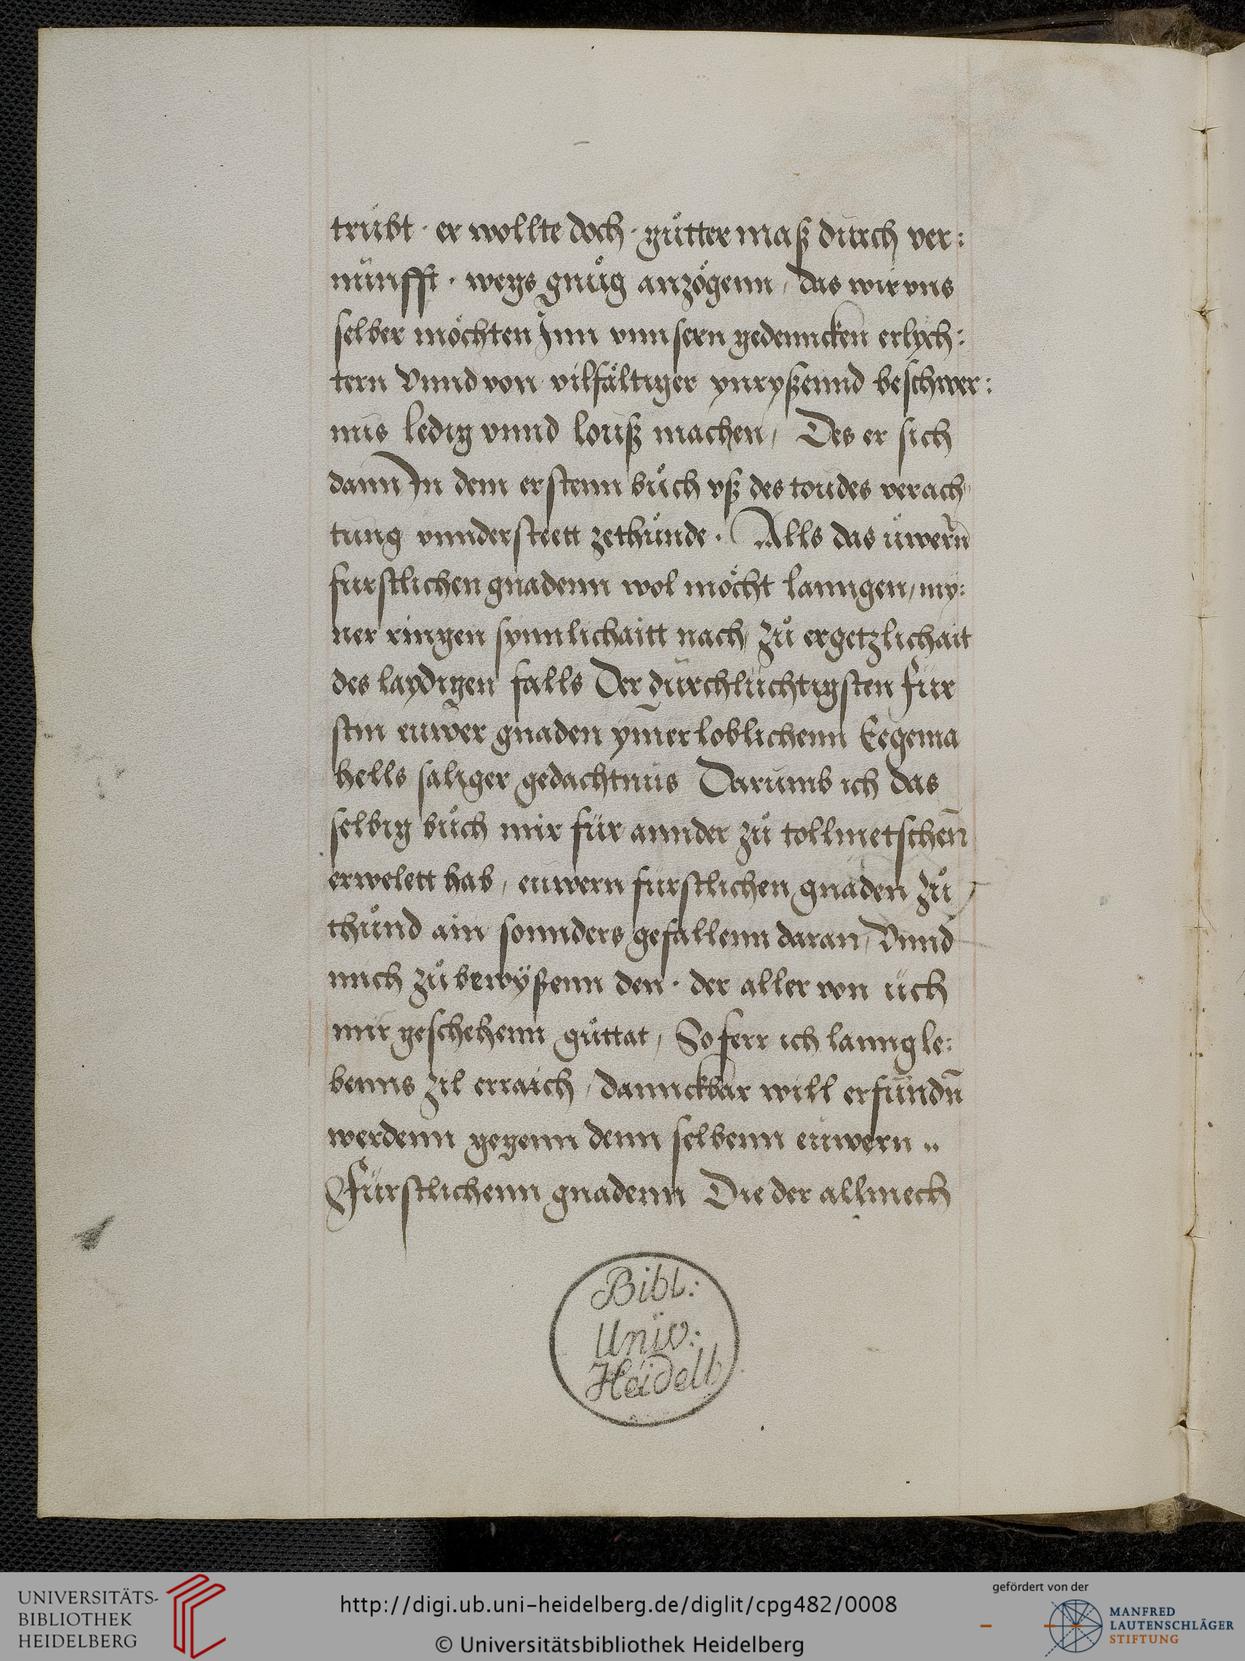 trübt · er wollte doch · gůtter maß durch ver:
nünfft · wegs gnůg anzögenn / das wir vns
selber möchten Inn vnnsern gedennckenn erlych:
tern Vnnd von vilfältiger ynryßennd beschwer:
nus ledig vnnd louß machen / Des er sich
dann In dem erstenn bůch vß des toudes verach
tung vnndersteett zethůnde · Alls das üwern̄
furstlichen gnadenn wol möcht lanngen / my:
ner ringen synnlichaitt nach zů ergetzlichait
des laydigen falls Der durchlüchtigsten für
stin euwer gnaden ym̄er loblichenn Eegema
hells saliger gedachtnus Darumb ich das
selbig bůch mir für annder zů tollmetschen̄
erwelett hab / euwern furstlichen gnaden zů
thůnd ain sonnders gefallenn daran / Vnnd
mich zů bewÿßenn den · der aller von üch
mir geschehenn gůttat / So ferr ich lanng le:
benns zil erraich / dannckbar will erfundn̄
werdenn gegenn denn selbenn euwern „
Fürstlichenn gnadenn Die der allmech
Bibl:
Univ:
Heidelb
UNIVERSITÄTS-
BIBLIOTHEK
HEIDELBERG
http://digi.ub.uni-heidelberg.de/diglit/cpg482/0008
© Universitätsbibliothek Heidelberg
gefördert von der
MANFRED
LAUTENSCHLÄGER
STIFTUNG